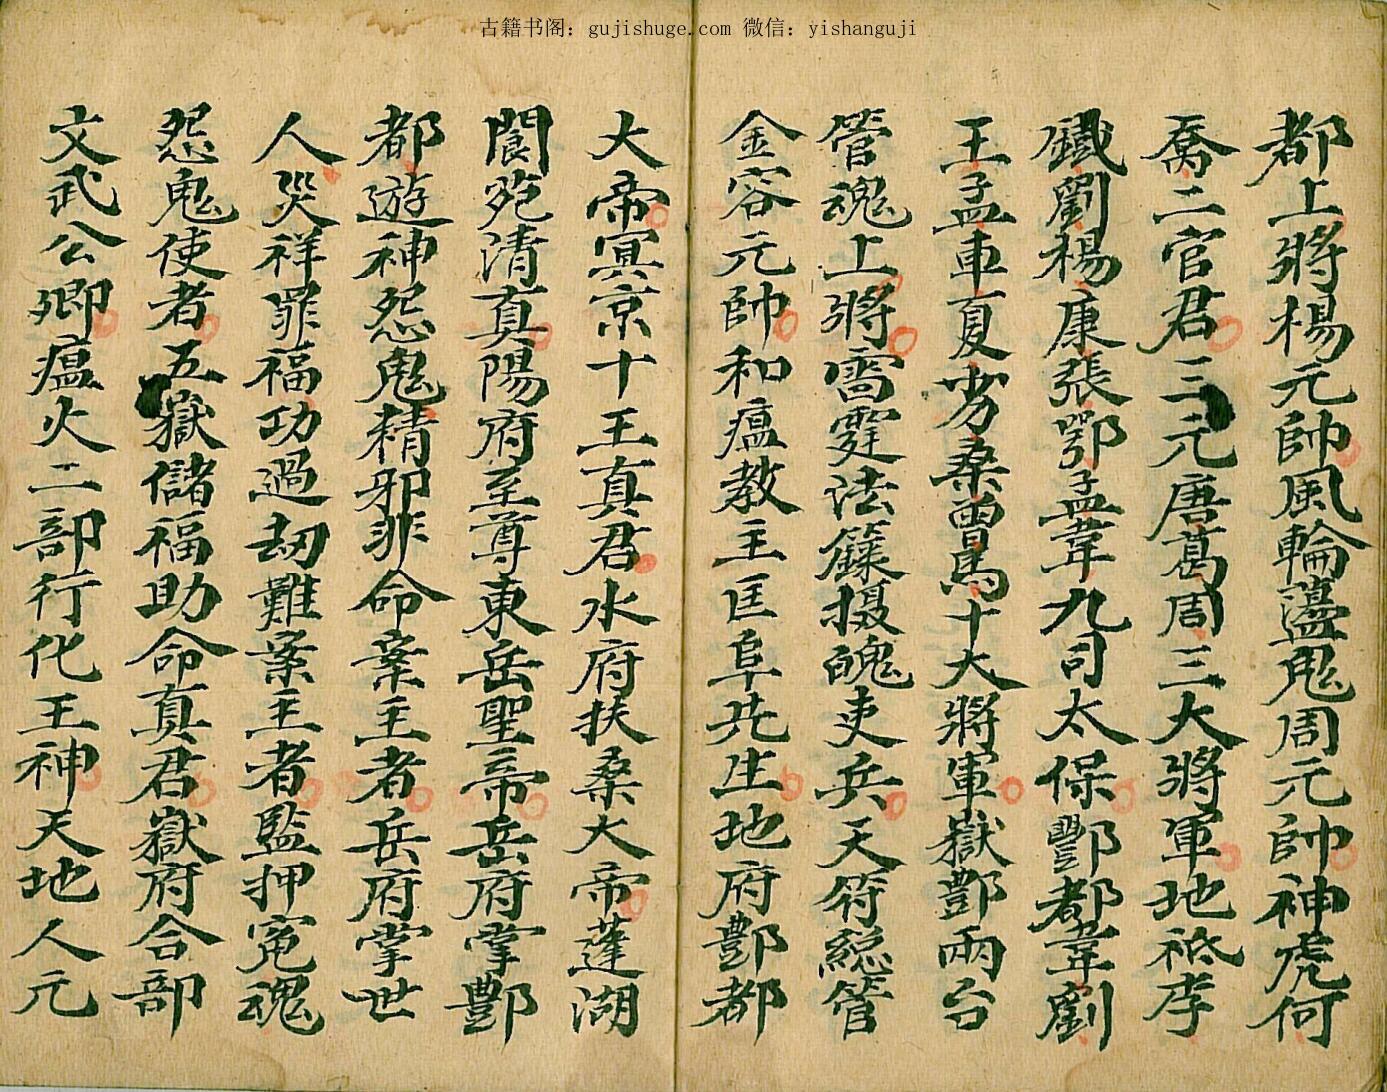 古籍书阁：gujishuge.com 微信：yishanguji
都上將楊元帥風輪盪鬼周元帥神虎何
喬二官君三元唐葛周三大將軍地祇李
鐵劉楊康張鄂孟韋九司太保酆都韋劉
王孟車夏劣桑曽馬十大將軍嶽酆兩台
管魂上將雷霆法籙摄魄吏兵天符総管
金容元帥和瘟教主匡阜先生地府酆都
大帝冥京十王真君水府扶桑大帝蓬湖
閬苑清真陽府至尊東岳聖帝岳府掌酆
都遊神怨鬼精邪非命案主者岳府掌世
人災祥罪福功過劫難案主者監押寃魂
怨鬼使者五嶽儲福助命真君嶽府合部
文武公卿瘟火二部行化王神天地人元